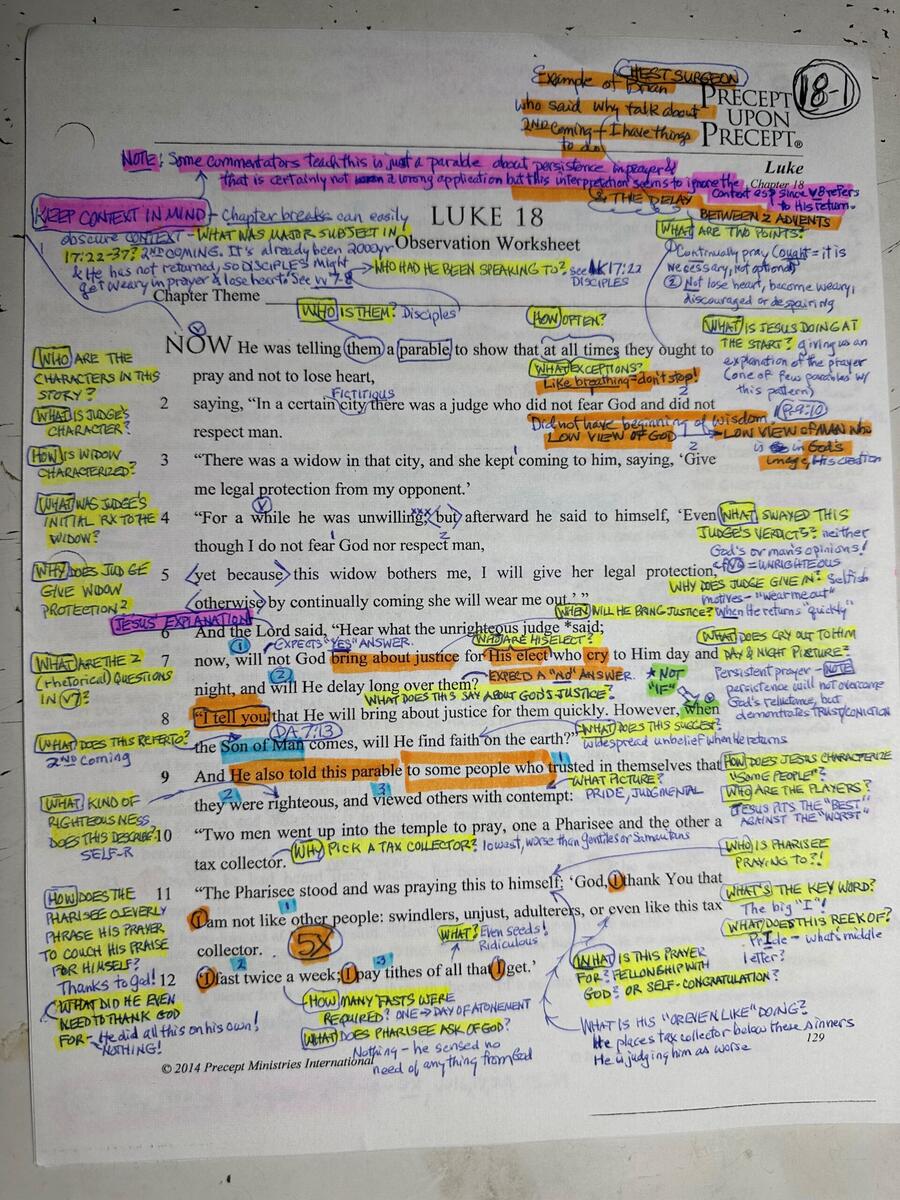 Example of Brian CHEST SURGEON
who said why talk about
2ND coming - I have things
to do
18-1
PRECEPT
UPON
PRECEPT®
Luke
Chapter 18
NOTE: Some commentators teach this is just a parable about persistence in prayer &
that is certainly not a wrong application but this interpretation seems to ignore the
context esp since v8 refers
to His return.
& THE DELAY
BETWEEN 2 ADVENTS
KEEP CONTEXT IN MIND - Chapter breaks can easily
obscure CONTEXT - WHAT WAS MAJOR SUBJECT IN
17:22-37? 2ND COMING. It's already been 2000yr
& He has not returned, so DISCIPLES might
get weary in prayer & lose heart. See vv 7-8
LUKE 18
Observation Worksheet
WHO HAD HE BEEN SPEAKING TO? see LK 17:22
DISCIPLES
WHAT ARE TWO POINTS?
① Continually pray (ought = it is
necessary, not optional)
② Not lose heart, become weary,
discouraged or despairing
Chapter Theme
WHO IS THEM? Disciples
HOW OFTEN?
WHAT IS JESUS DOING AT
THE START? giving us an
explanation of the prayer
(one of few parables w/
this pattern)
NOW He was telling them a parable to show that at all times they ought to
pray and not to lose heart,
WHAT EXCEPTIONS?
Like breathing - don't stop!
WHO ARE THE
CHARACTERS IN THIS
STORY?
Fictitious
2 saying, "In a certain city there was a judge who did not fear God and did not
respect man.
WHAT IS JUDGE'S
CHARACTER?
Did not have beginning of wisdom
Pr 9:10
LOW VIEW OF GOD → LOW VIEW OF MAN who
is in God's
image, His creation
HOW IS WIDOW
CHARACTERIZED?
3 "There was a widow in that city, and she kept coming to him, saying, 'Give
me legal protection from my opponent.'
WHAT WAS JUDGE'S
INITIAL RX TO THE
WIDOW?
4 "For a while he was unwilling; but afterward he said to himself, 'Even
though I do not fear God nor respect man,
WHAT SWAYED THIS
JUDGE'S VERDICTS? neither
God's or man's opinions!
= UNRIGHTEOUS
WHY DOES JUDGE
GIVE WIDOW
PROTECTION?
5 yet because this widow bothers me, I will give her legal protection,
otherwise by continually coming she will wear me out.'"
WHY DOES JUDGE GIVE IN? Selfish
motives - "wear me out"
JESUS EXPLANATION
WHEN WILL HE BRING JUSTICE? When He returns "quickly"
6 And the Lord said, "Hear what the unrighteous judge *said;
① EXPECTS "YES" ANSWER.
WHO ARE HIS ELECT?
WHAT DOES CRY OUT TO HIM
DAY & NIGHT PICTURE?
Persistent prayer - NOTE
persistence will not overcome
God's reluctance, but
demonstrates TRUST/CONVICTION
WHAT ARE THE 2
(rhetorical) QUESTIONS
IN v7?
7 now, will not God bring about justice for His elect who cry to Him day and
night, and will He delay long over them?
② EXPECTS A "NO" ANSWER.
* NOT
"IF"
WHAT DOES THIS SAY ABOUT GOD'S JUSTICE?
8 "I tell you that He will bring about justice for them quickly. However, when
the Son of Man comes, will He find faith on the earth?"
DA 7:13
WHAT DOES THIS REFER TO?
2ND COMING
WHAT DOES THIS SUGGEST?
widespread unbelief when He returns
9 And He also told this parable to some people who trusted in themselves that
they were righteous, and viewed others with contempt:
1
2
3
WHAT PICTURE?
PRIDE, JUDGMENTAL
HOW DOES JESUS CHARACTERIZE
"SOME PEOPLE"?
WHO ARE THE PLAYERS?
JESUS PITS THE "BEST"
AGAINST THE "WORST"
WHAT KIND OF
RIGHTEOUSNESS
DOES THIS DESCRIBE?
SELF-R
10 "Two men went up into the temple to pray, one a Pharisee and the other a
tax collector.
WHY PICK A TAX COLLECTOR? lowest, worse than gentiles or Samaritans
WHO IS PHARISEE
PRAYING TO?!
11 "The Pharisee stood and was praying this to himself: 'God, I thank You that
I am not like other people: swindlers, unjust, adulterers, or even like this tax
collector.
1
5X
HOW DOES THE
PHARISEE CLEVERLY
PHRASE HIS PRAYER
TO COUCH HIS PRAISE
FOR HIMSELF?
Thanks to God!
WHAT'S THE KEY WORD?
The big "I"!
WHAT DOES THIS REEK OF?
PrIde - what's middle
letter?
WHAT? Even seeds!
Ridiculous
12 'I fast twice a week; I pay tithes of all that I get.'
2
3
WHAT IS THIS PRAYER
FOR? FELLOWSHIP WITH
GOD? OR SELF-CONGRATULATION?
WHAT DID HE EVEN
NEED TO THANK GOD
FOR - He did all this on his own!
NOTHING!
HOW MANY FASTS WERE
REQUIRED? ONE → DAY OF ATONEMENT
WHAT DOES PHARISEE ASK OF GOD?
Nothing - he sensed no
need of anything from God
WHAT IS HIS "OR EVEN LIKE" DOING?
He places tax collector below these sinners
He is judging him as worse
© 2014 Precept Ministries International
129